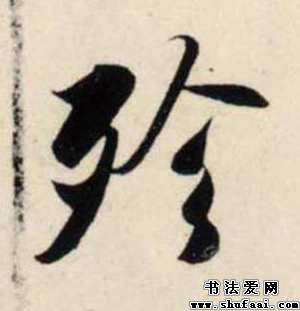 殄
书法爱网
www.shufaai.com